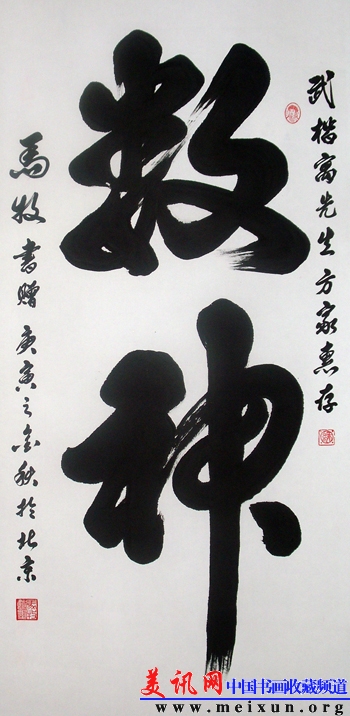 武楷高先生方家惠存
数神
马牧书赠庚寅之金秋於北京
美讯网 中国书画收藏频道
www.meixun.org